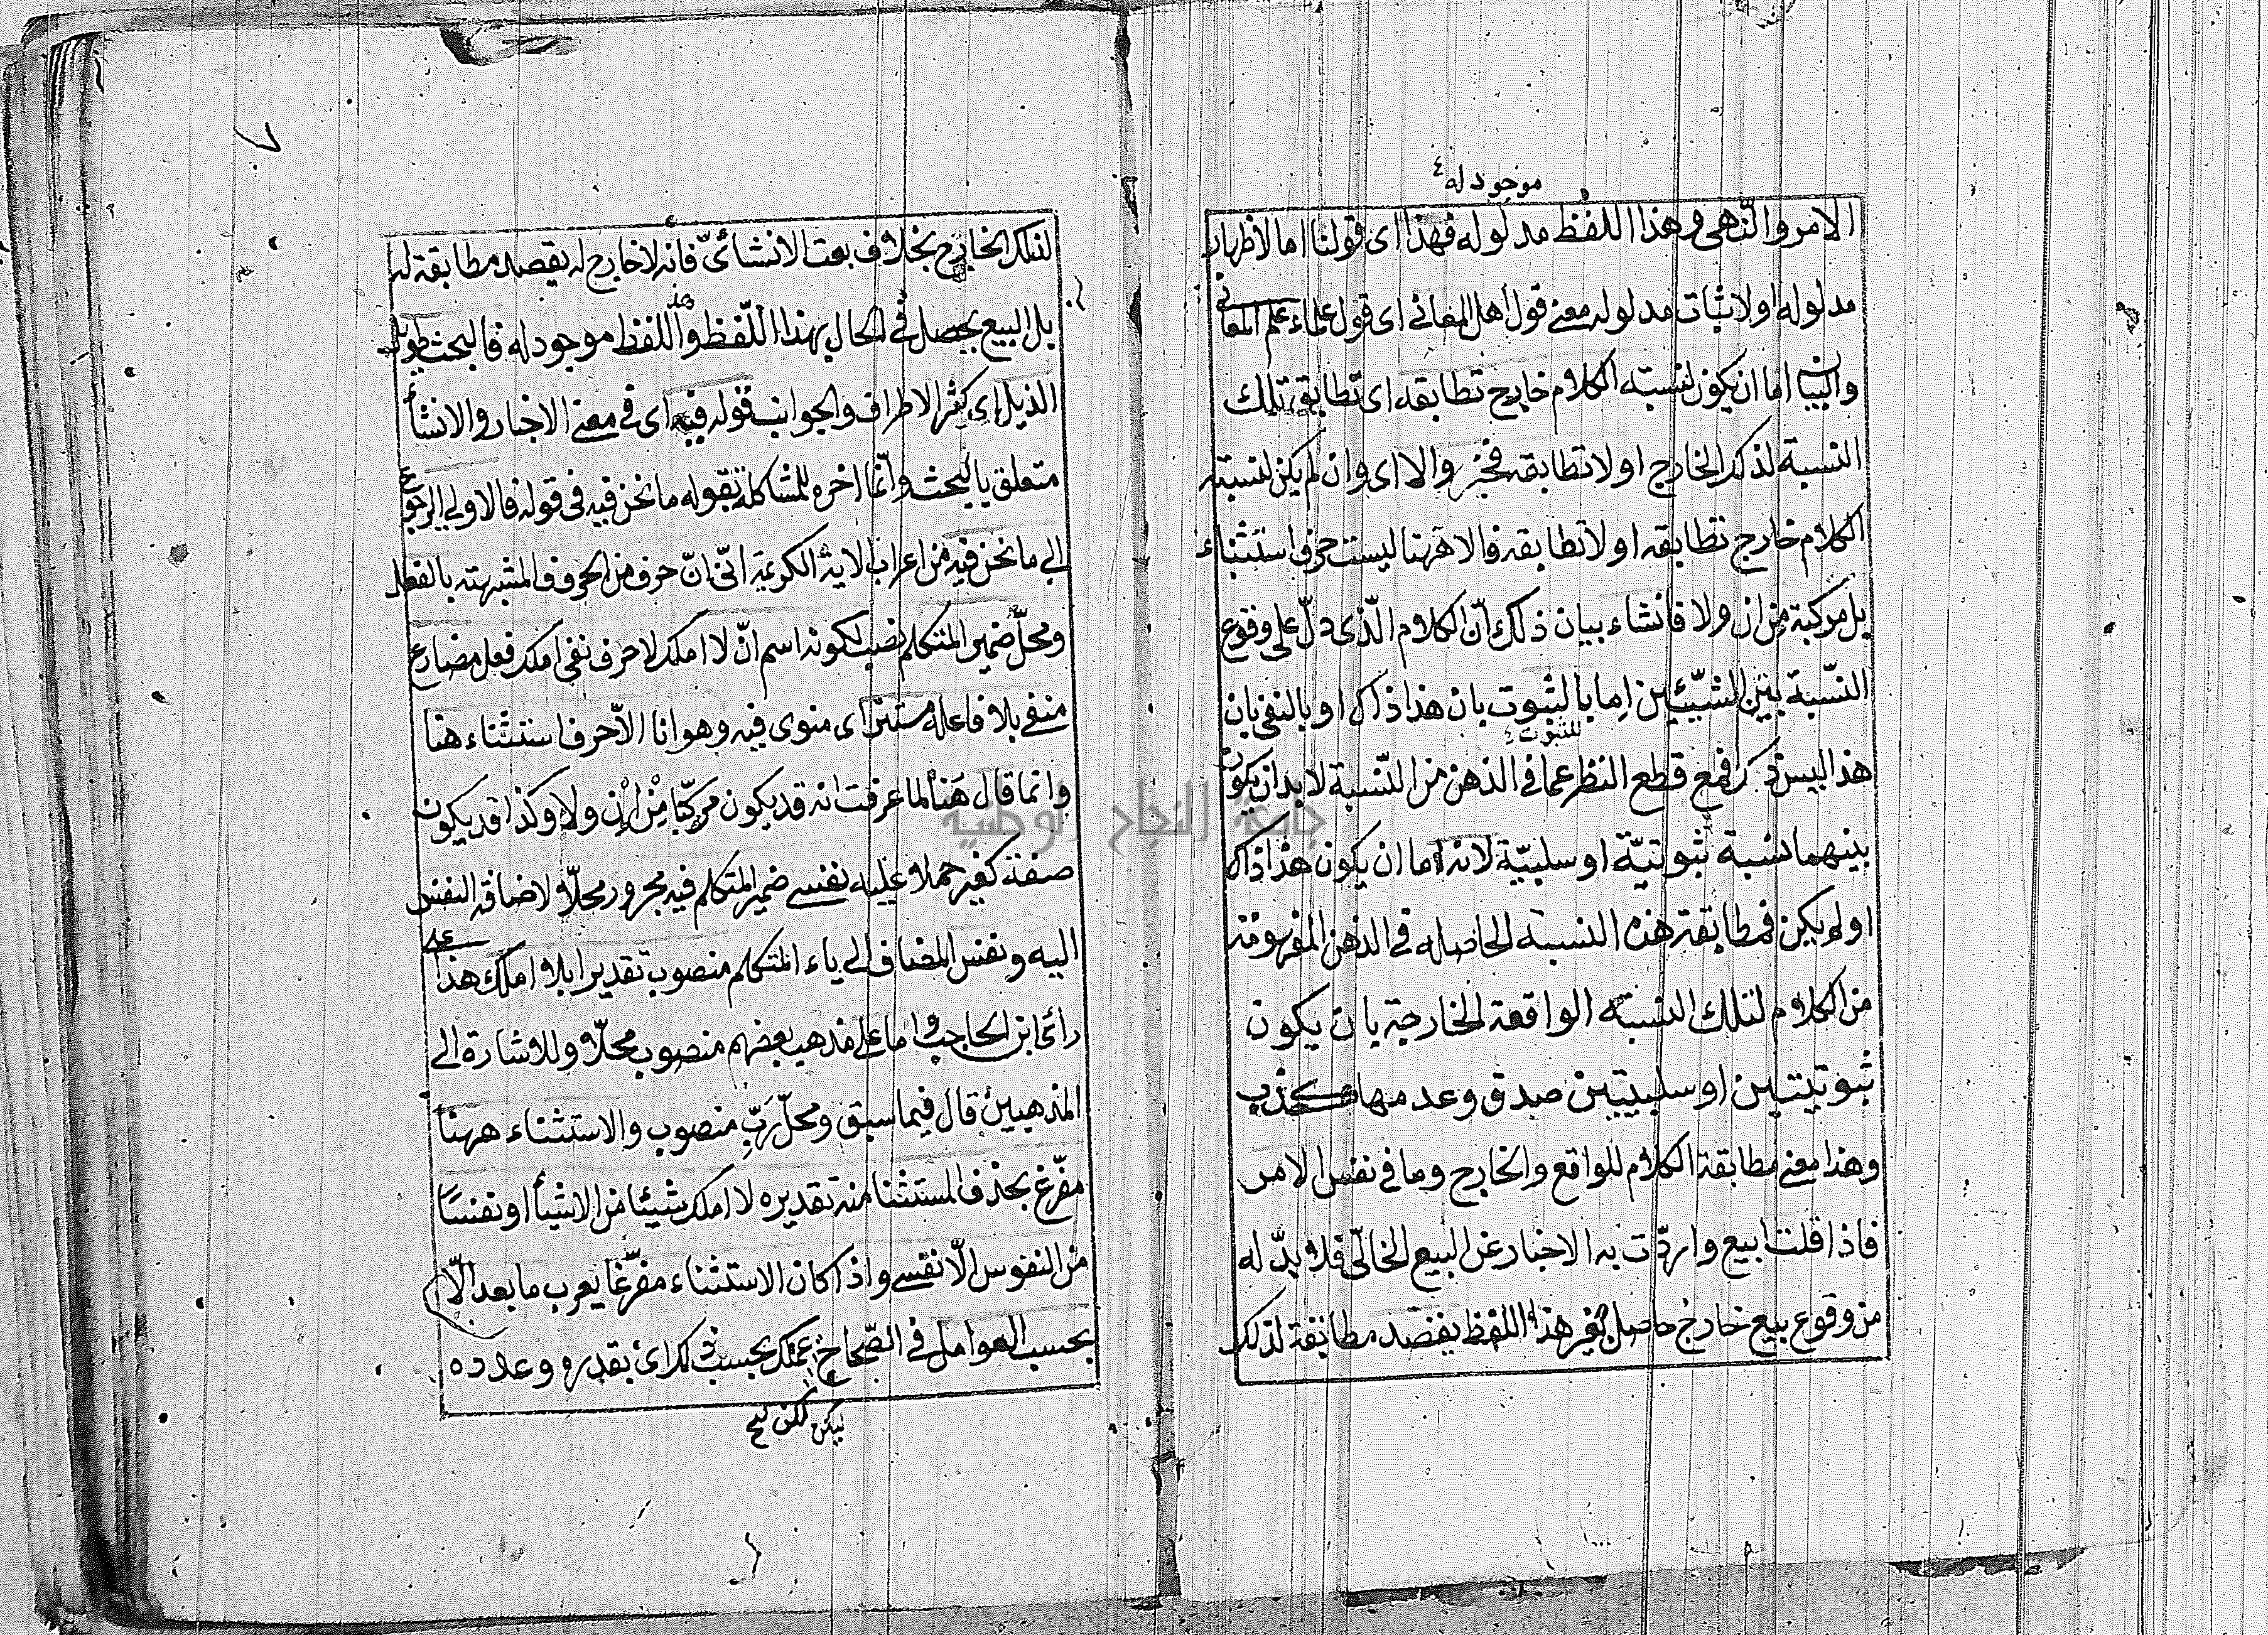 موجود له ٤
الامر والنهى وهذا اللفظ مدلوله فهذا اى قولنا اما لاظهار
مدلوله او لاثبات مدلوله معنى قول اهل المعانى اى قول علماء علم المعانى
والبيان اما ان يكون لنسبته الكلام خارج تطابقه اى تطابق تلك
النسبة لذلك الخارج او لا تطابقه فخبر والا اى وان لم يكن لنسبته
الكلام خارج تطابقه او لا تطابقه والا ههنا ليست حرف استثناء
بل مركبة من ان ولا فانشاء بيان ذلك انّ الكلام الّذى دلّ على وقوع
النسّبة بين الشيئين اما بالثبوت بان هذا ذاك او بالنفى بان
للثبوت
هذا ليس ذاك فمع قطع النظر عما فى الذهن من النّسبة لا بد ان يكون
بينهما نسبة ثبوتيّة او سلبيّة لانه اما ان يكون هذا ذاك
او لم يكن فمطابقة هذه النسبة الحاصله فى الذهن المفهومة
من الكلام لتلك النسبته الواقعة الخارجية بان يكون
ثبوتيتين او سلبيتين صدق وعدمها كذب
وهذا معنى مطابقة الكلام للواقع والخارج وما فى نفس الامر
فاذا قلت ابيع واردّت به الاخبار عن البيع الحالّى فلا بدّ له
من وقوع بيع خارج حاصل بغير هذا اللفظ يقصد مطابقة لذلك
٧
لذلك الخارج بخلاف بعت الانشائىّ فانه لا خارج له يقصد مطابقة له
بل البيع يحصل فى الحال بهذا اللّفظ وهذا اللفظ موجود له فالبحث طويل
الذيل اى كثير الاطراف والجوانب قوله فيه اى فى معنى الاخبار والانشأ
متعلق بالبحث وانّما اخره للمشاكلة بقوله ما نحن فيه فى قوله فالاولى الرجوع
الى ما نحن فيه من اعراب الاية الكريمة انّى انّ حرف من الحروف المشبهته بالفعل
ومحلّ ضمير المتكلم نصب لكونه اسم انّ لا املك لا حرف نفى املك فعل مضارع
منفى بلا فاعله مستتر اى منوى فيه وهو انا الّا حرف استثناء هنا
وانما قال هَنا لما عرفت انه قد يكون مركبًّا مِنْ اِنْ ولا وكذا قد يكون
صفة كغير حملا عليه نفسى ضمير المتكلم فيه مجرور محلّا لاضافة النفس
اليه ونفس المضاف الى ياء المتكلم منصوب تقديرا بلا املك هذا على
رأى ابن الحاجب واما على مذهب بعضهم منصوب محلّا وللاشارة الى
المذهبين قال فيما سبق ومحلّ رَبِّ منصوب والاستثناء ههنا
مفرّغ بحذف المستثنا منه تقديره لا املك شيئا من الاشيأ او نفسًا
من النفوس الّا نفسى واذا كان الاستثناء مفرّغا يعرب ما بعد الّا
بحسب العوامل فى الصّحاح بحسب ذلك اى بقدره وعدده